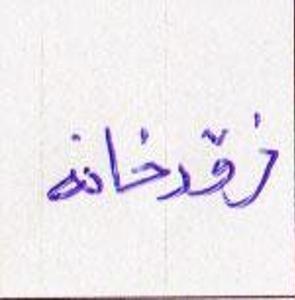 زقدخانه